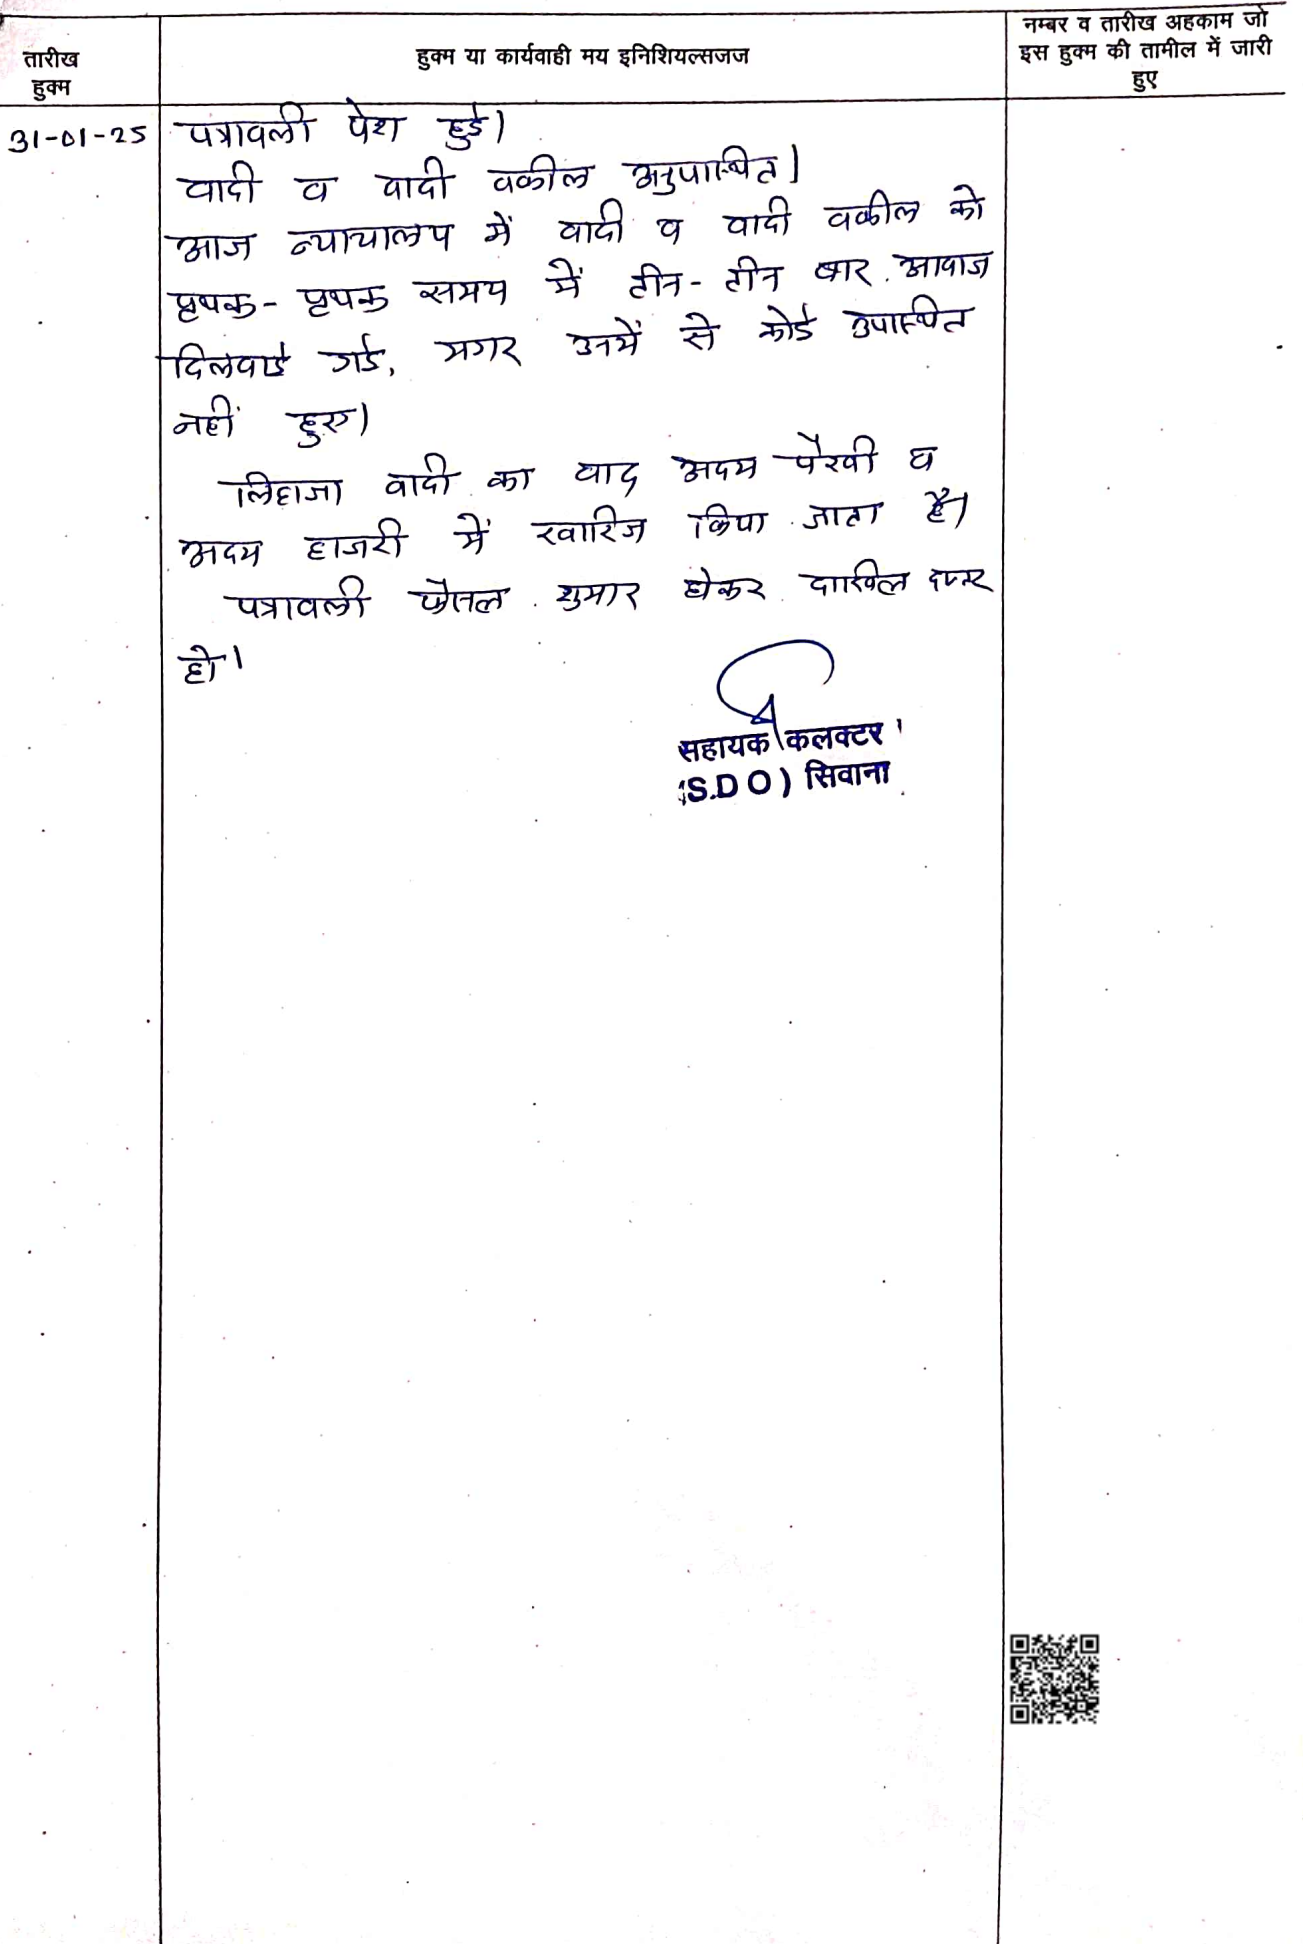 तारीख
हुक्म
हुक्म या कार्यवाही मय इनिशियल्सजज
नम्बर व तारीख अहकाम जो
इस हुक्म की तामील में जारी
हुए
31-01-25
पत्रावली पेश हुई।
वादी व वादी वकील अनुपस्थित।
आज न्यायालय में वादी व वादी वकील को
पृथक-पृथक समय में तीन-तीन बार आवाज
दिलवाई गई, मगर उनमें से कोई उपस्थित
नहीं हुए।
लिहाजा वादी का वाद अदम पैरवी व
अदम हाजरी में खारिज किया जाता है।
पत्रावली फैसल शुमार होकर दाखिल दफ्तर
हो।
सहायक कलक्टर
(S.D O) सिवाना